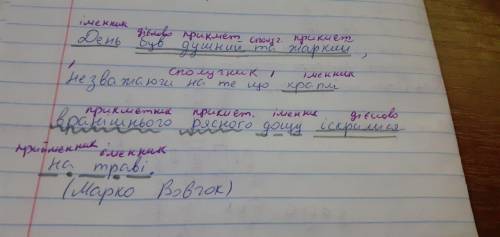 іменник
дієслово прикмет. сполуч. прикмет
День був душний та жаркий,
сполучник іменник
незважаючи на те що краплі
прикметник прикмет. іменник дієслово
вранішнього рясного дощу іскрилися
прийменник іменник
на траві.
(Марко Вовчок)